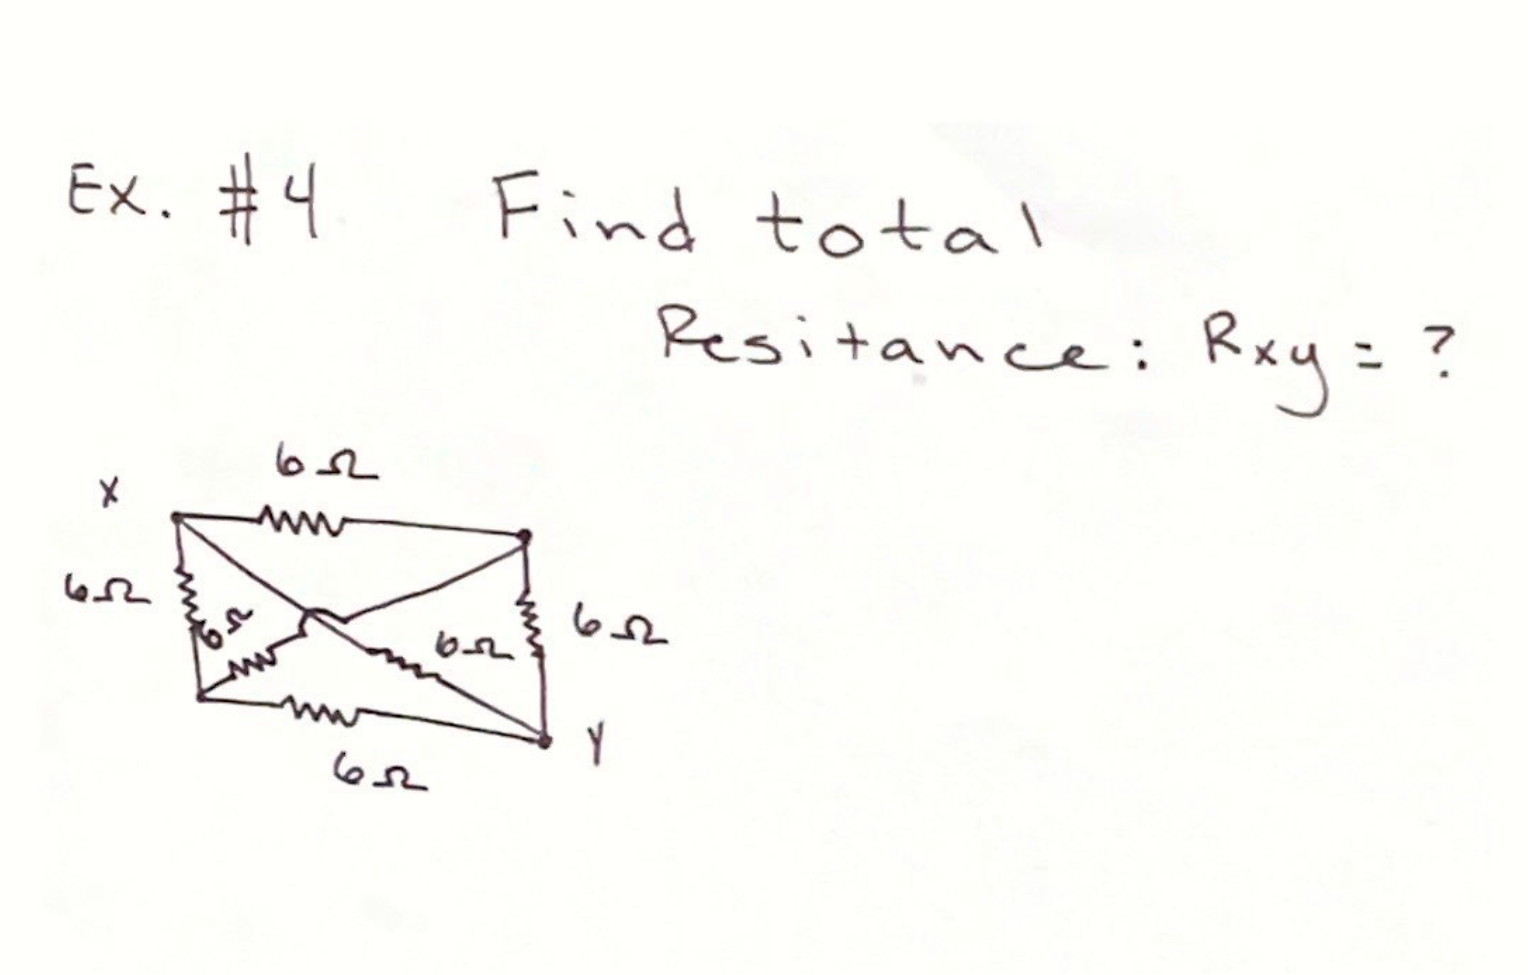 Ex. #4 Find total
Resitance: Rxy = ?
6Ω
X
6Ω
6Ω
6Ω
6Ω
Y
6Ω